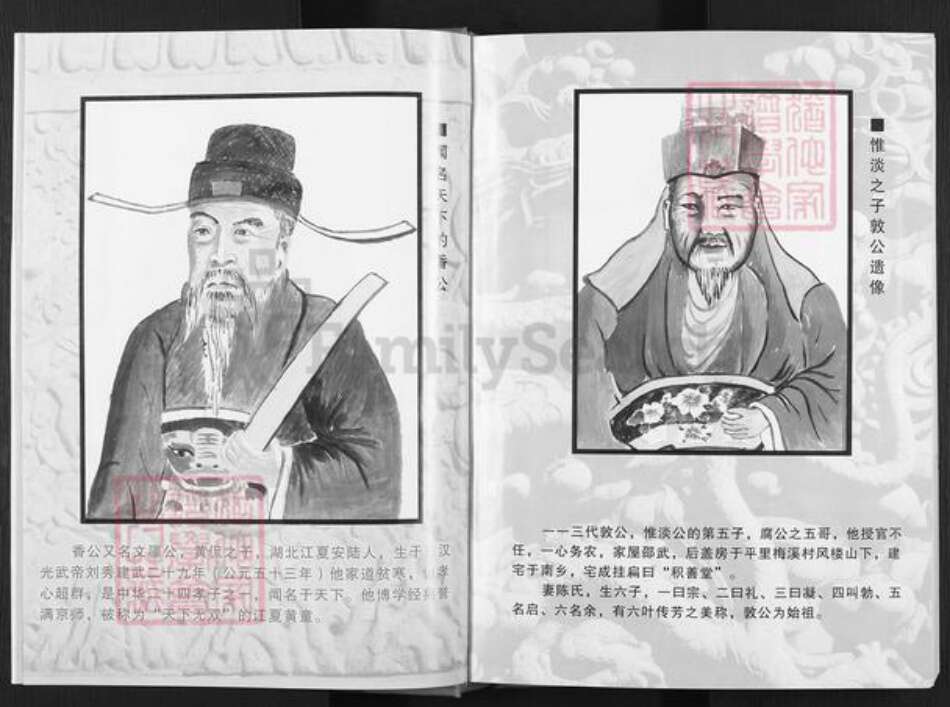 闻名天下的香公
香公又名文彊公，黄侃之子，湖北江夏安陆人，生于 汉
光武帝刘秀建武二十九年（公元五十三年）他家道贫寒， 孝
心超群。是中华二十四孝子之一，闻名于天下。他博学经典誉
满京师，被称为“天下无双”的江夏黄童。
惟淡之子敦公遗像
一一三代敦公，惟淡公的第五子，腐公之五哥，他授官不
任，一心务农，家屋邵武，后盖房于平里梅溪村风楼山下，建
宅于南乡，宅成挂扁曰“积善堂”。
妻陈氏，生六子，一曰宗、二曰礼、三曰凝、四叫勃、五
名启、六名余，有六叶传芳之美称，敦公为始祖。
FamilySe